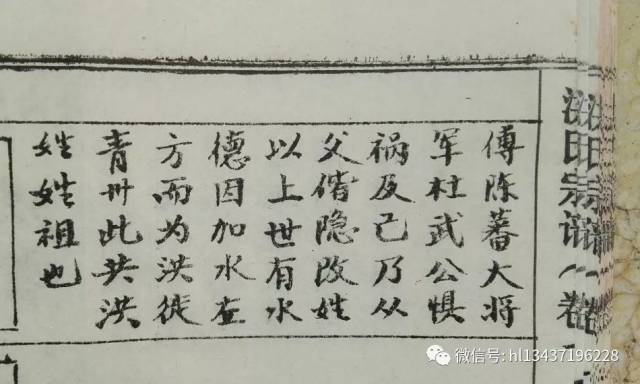 洪氏宗谱
卷
傅陈蕃大将
军杜武公惧
祸及己乃从
父偕隐改姓
以上世有水
德因加水左
方而为洪徙
青州此共洪
姓姓祖也
微信号: hl13437196228